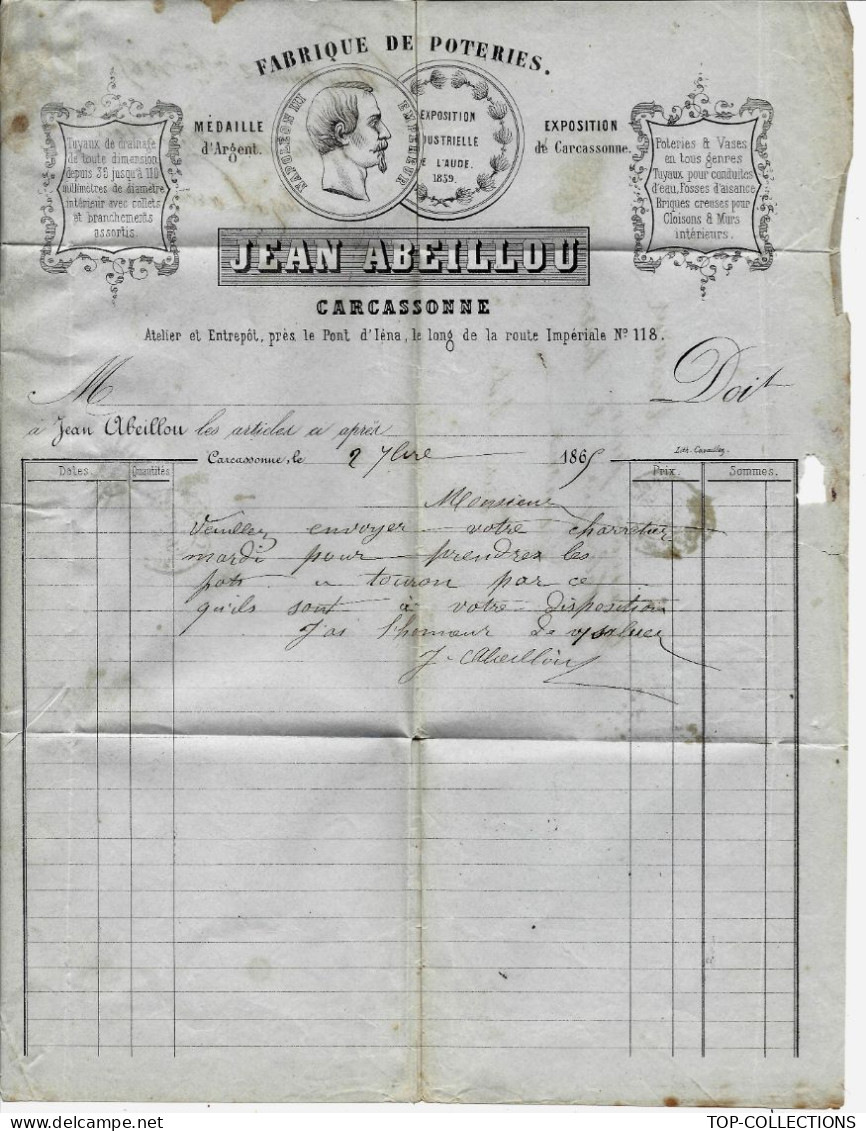 FABRIQUE DE POTERIES.
MÉDAILLE
d'Argent.
NAPOLEON III EMPEREUR
EXPOSITION
DUSTRIELLE
E L'AUDE.
1859.
EXPOSITION
de Carcassonne.
Tuyaux de drainage
de toute dimension
depuis 35 jusqu'à 110
millimètres de diamètre
intérieur avec collets
et branchements
assortis.
Poteries & Vases
en tous genres
Tuyaux pour conduites
d'eau, Fosses d'aisance
Briques creuses pour
Cloisons & Murs
intérieurs.
JEAN ABEILLOU
CARCASSONNE
Atelier et Entrepôt, près le Pont d'Iéna, le long de la route Impériale No 118.
M Doit
à Jean Abeillou les articles ci après
Carcassonne, le 2 7bre 1865
Lith. Cavaillez.
Dates. Quantités Prix. Sommes.
Monsieur
Veuillez envoyer votre charretier
mardi pour prendrez les
pots a touron par ce
qu'ils sont à votre disposition
J'ai l'honneur de v/saluer
J. Abeillou
TOP-COLLECTIONS